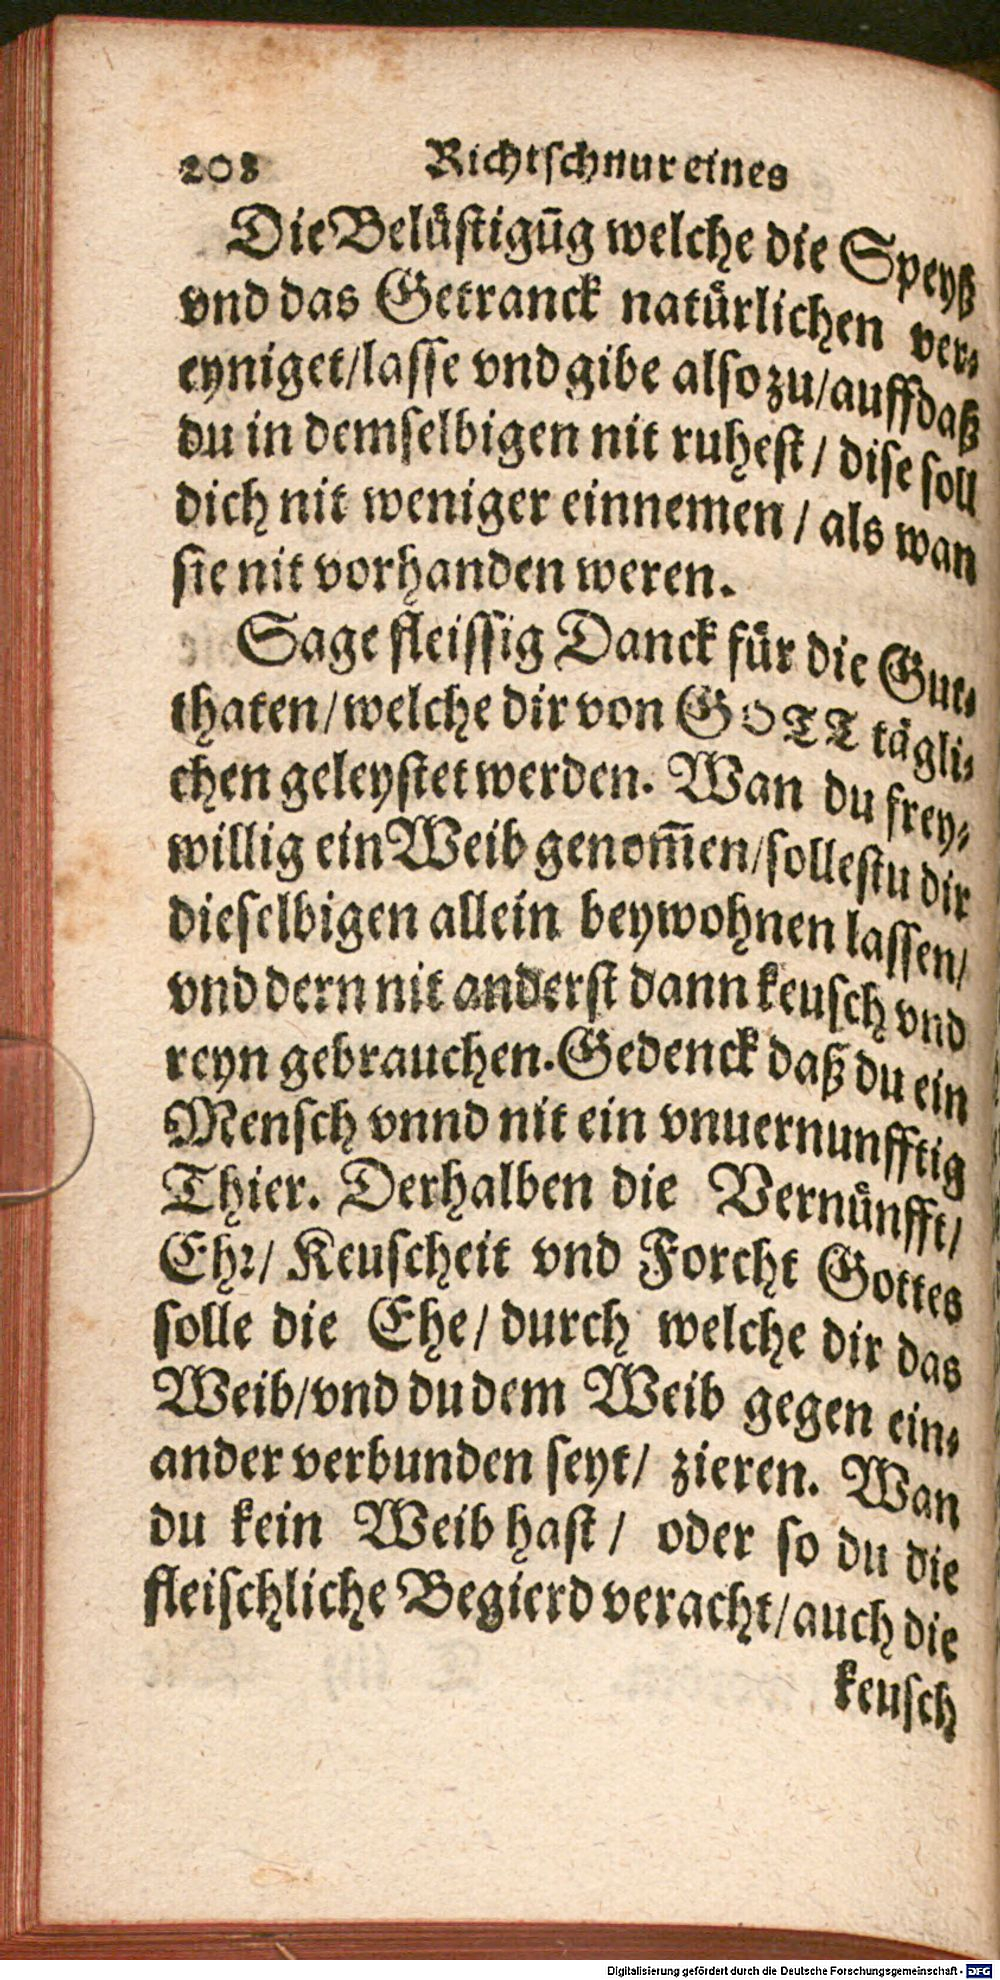 208 Richtschnur eines
Die Belüstigūg welche die Speyß
vnd das Getranck natürlichen ver-
eyniget/lasse vnd gibe also zu/auff daß
du in demselbigen nit ruhest/ dise soll
dich nit weniger einnemen/ als wan
sie nit vorhanden weren.
Sage fleissig Danck für die Gut-
thaten/welche dir von GOTT tägli-
chen geleystet werden. Wan du frey-
willig ein Weib genom̄en/sollestu dir
dieselbigen allein beywohnen lassen/
vnd dern nit anderst dann keusch vnd
reyn gebrauchen. Gedenck daß du ein
Mensch vnnd nit ein vnuernunfftig
Thier. Derhalben die Vernünfft/
Ehr/ Keuscheit vnd Forcht Gottes
solle die Ehe/ durch welche dir das
Weib/vnd du dem Weib gegen ein-
ander verbunden seyt/ zieren. Wan
du kein Weib hast/ oder so du die
fleischliche Begierd veracht/auch die
keusch
Digitalisierung gefördert durch die Deutsche Forschungsgemeinschaft - DFG